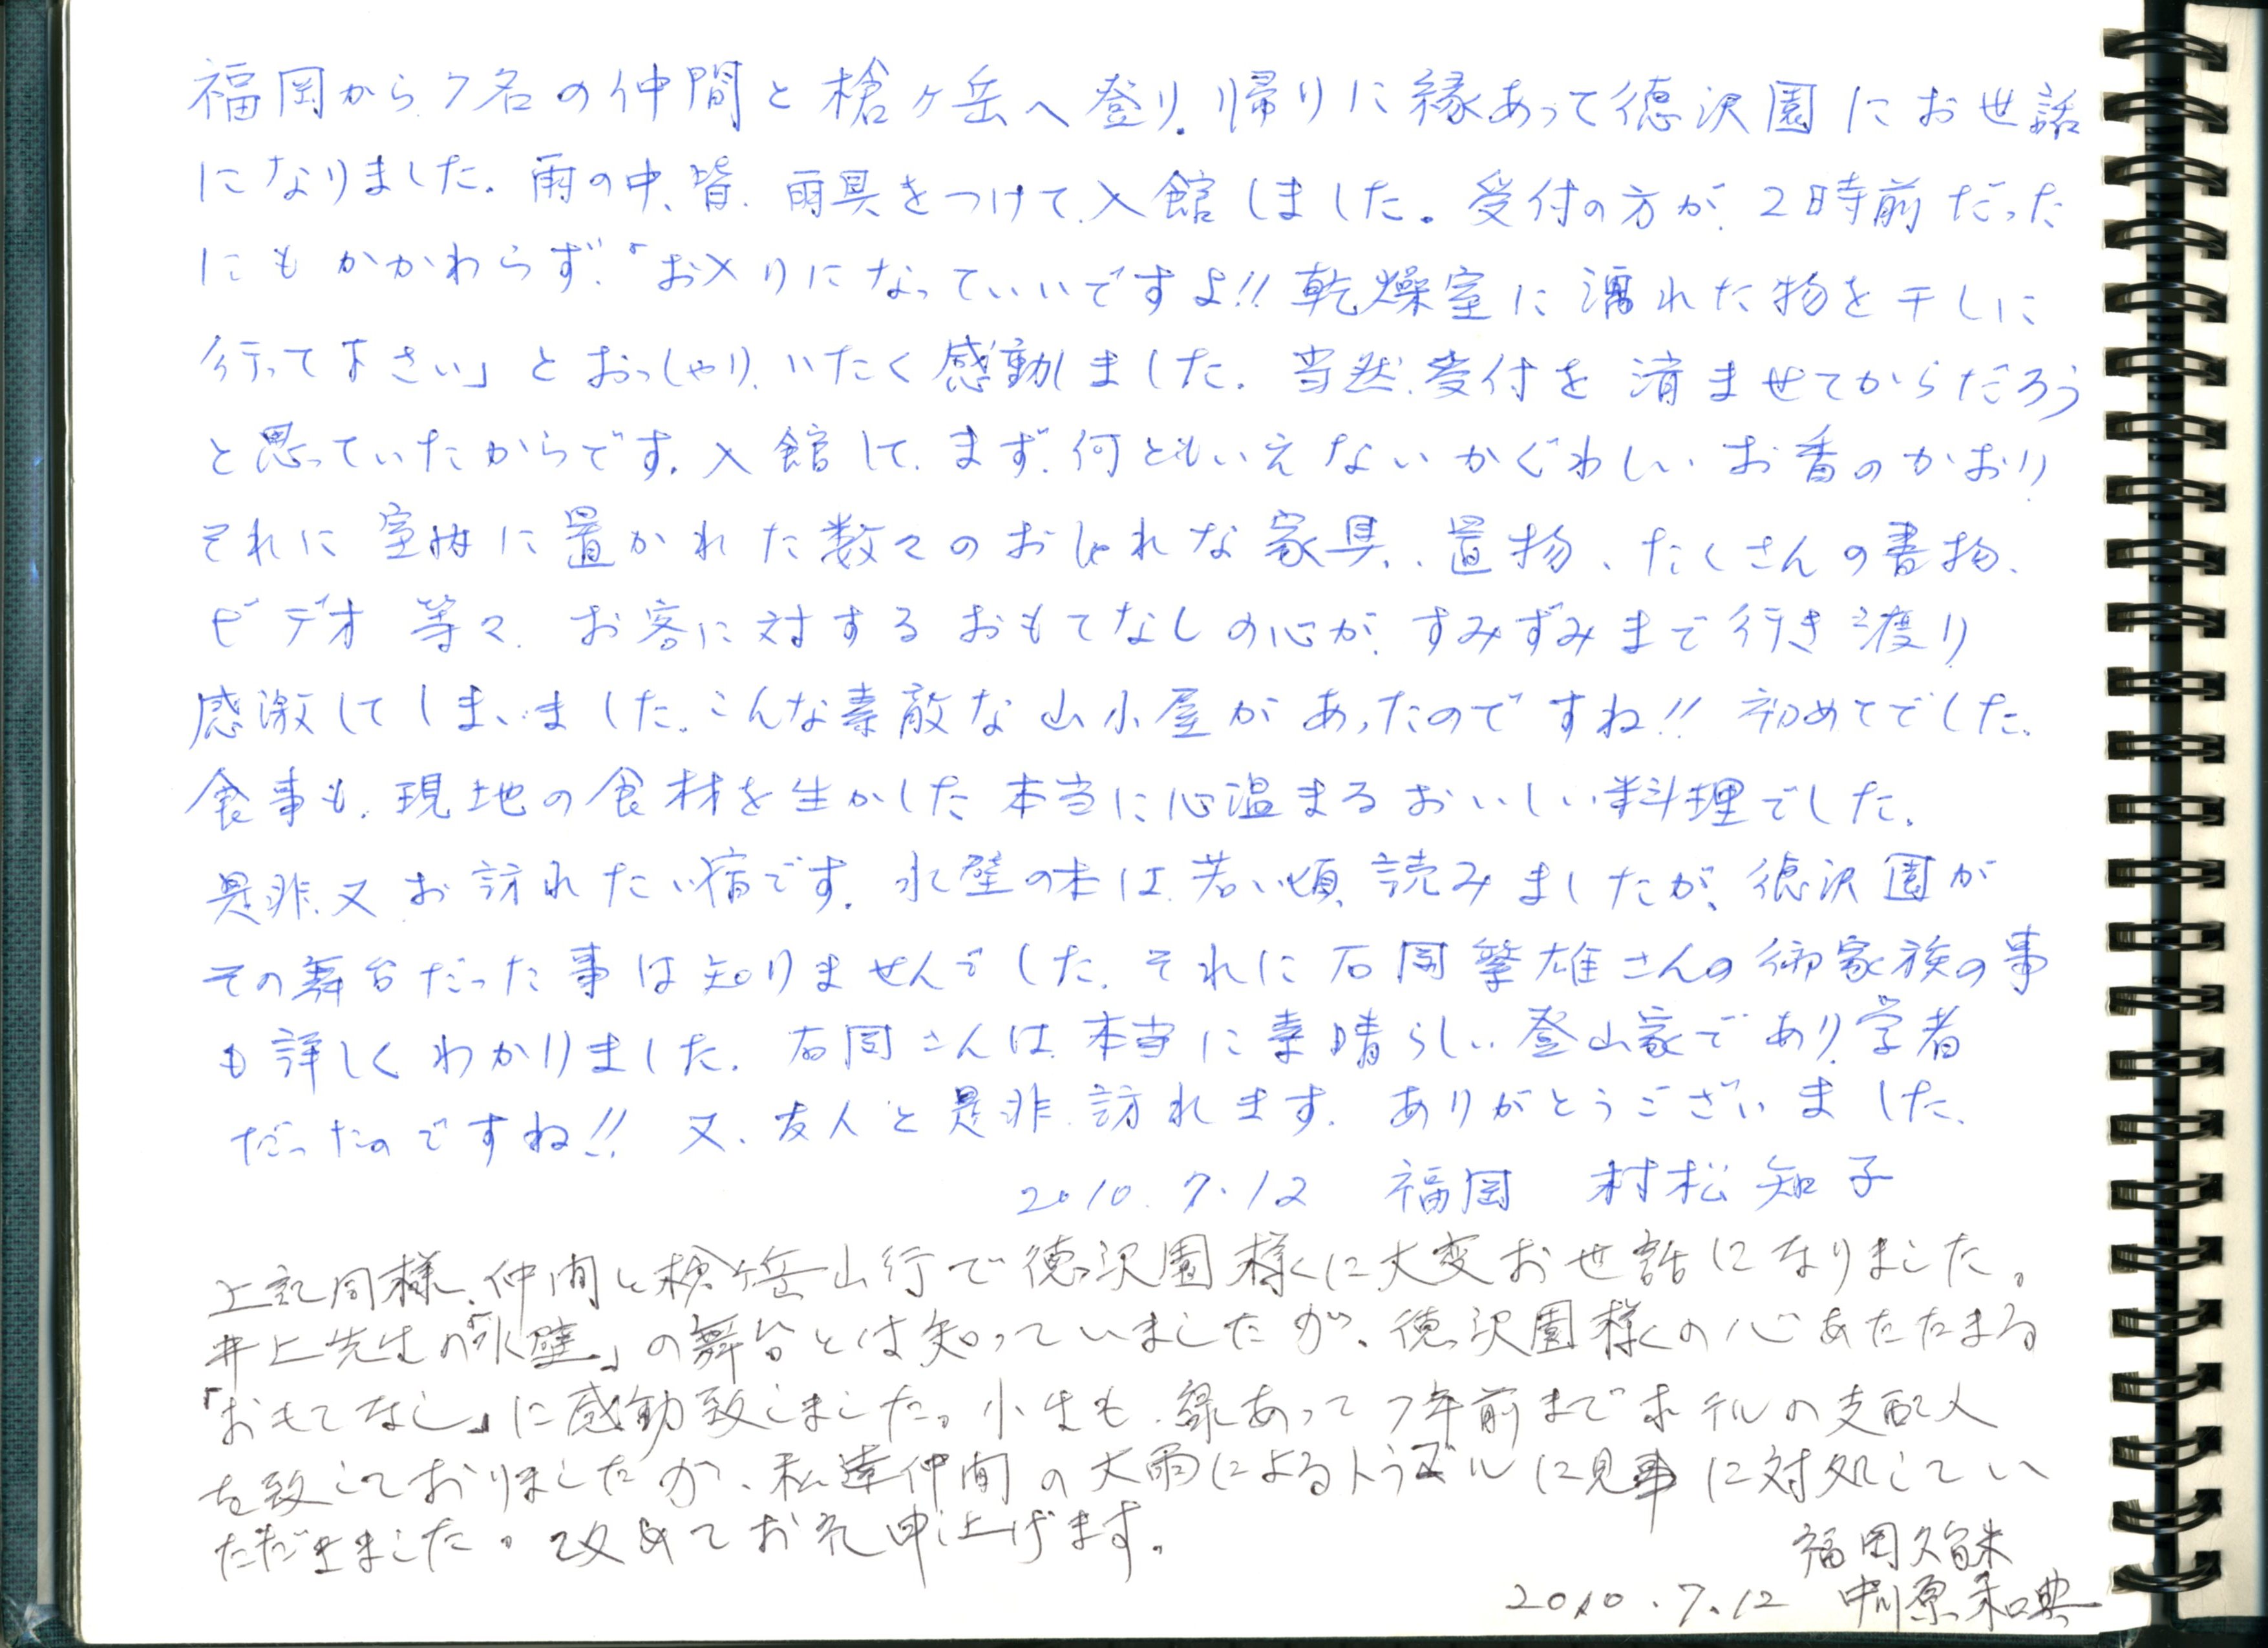 福岡から7名の仲間と槍ヶ岳へ登り、帰りに縁あって徳沢園にお世話
になりました。雨の中、皆、雨具をつけて、入館しました。受付の方が、2時前だった
にもかかわらず、「お入りになっていいですよ!!乾燥室に濡れた物を干しに
行って下さい」とおっしゃり、いたく感動しました。当然、受付を済ませてからだろう
と思っていたからです。入館して、まず、何ともいえないかぐわしいお香のかおり
それに室内に置かれた数々のおしゃれな家具、置物、たくさんの書物、
ビデオ等々、お客に対するおもてなしの心が、すみずみまで行き渡り
感激してしまいました。こんな素敵な山小屋があったのですね!!初めてでした。
食事も、現地の食材を生かした本当に心温まるおいしい料理でした。
是非、又お訪れたい宿です。氷壁の本は若い頃、読みましたが、徳沢園が
その舞台だった事は知りませんでした。それに石岡繁雄さんの御家族の事
も詳しくわかりました。石岡さんは、本当に素晴らしい登山家であり、学者
だったのですね!!又、友人と是非、訪れます。ありがとうございました。
2010.7.12 福岡 村松知子
上記同様、仲間と槍ヶ岳山行で徳沢園様に大変お世話になりました。
井上先生の「氷壁」の舞台とは知っていましたが、徳沢園様の心あたたまる
「おもてなし」に感動致しました。小生も、縁あって7年前までホテルの支配人
を致しておりましたが、私達仲間の大雨によるトラブルに見事に対処してい
ただきました。改めてお礼申し上げます。
福岡久留米
2010.7.12 中川原和典